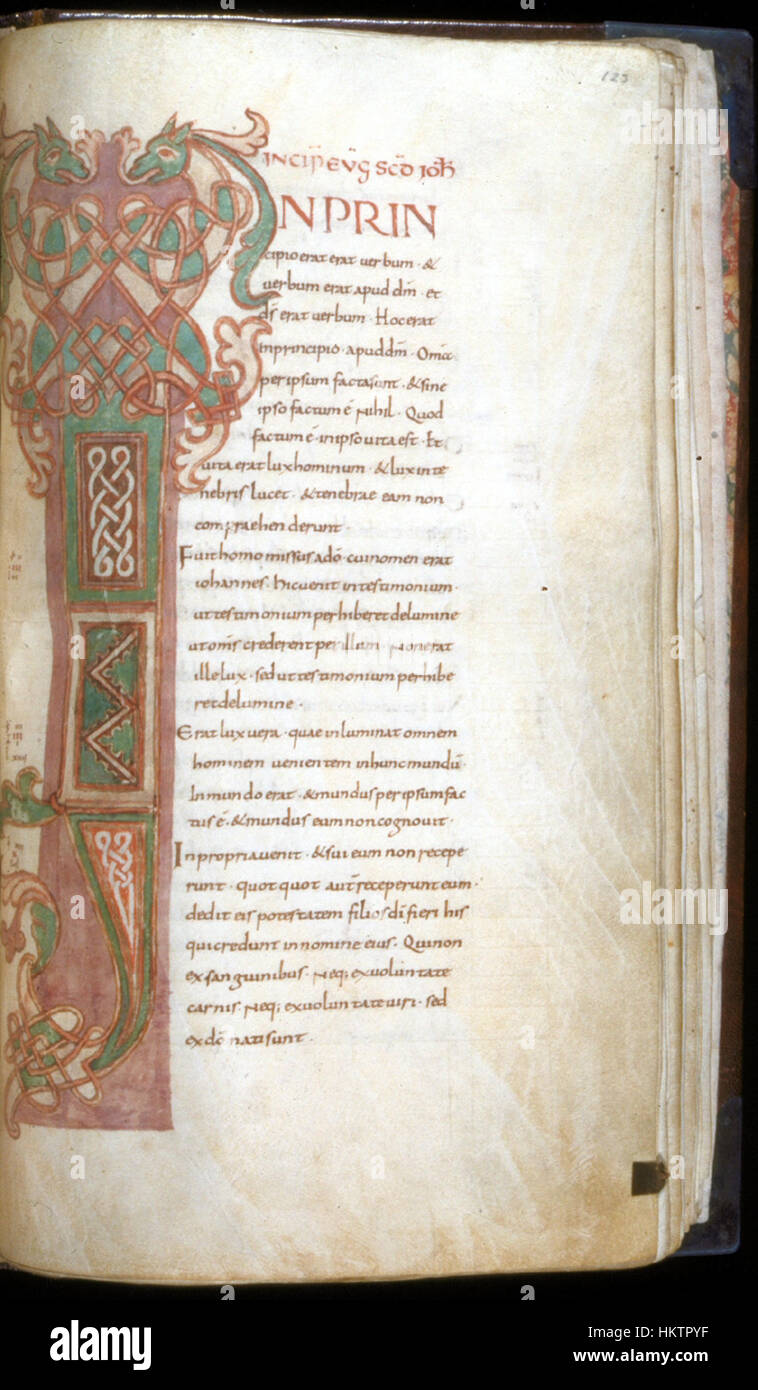 123
INCIP EVG SCD IOH
IN PRIN
cipio erat erat verbum · &
verbum erat apud dm̄ · et
ds̄ erat verbum · Hoc erat
inprincipio · apud dm̄ · Omia
per ipsum facta sunt · & sine
ipso factum ē Nihil · Quod
factum ē · in ipso vita est · Et
vita erat lux hominum · & lux in te
nebris lucet · & tenebrae eam non
compraehenderunt ·
Fuit homo missus a dō · cui nomen erat
iohannes · hic venit in testimonium ·
ut testimonium perhiberet de lumine
ut om̄s crederent per illum · Non erat
ille lux · sed ut testimonium perhibe
ret de lumine ·
Erat lux vera · quae inluminat omnem
hominem venientem in hunc mundū ·
In mundo erat · & mundus per ipsum fac
tus ē · & mundus eum non cognovit ·
In propria venit · & sui eum non recepe
runt · quot quot aut̄ receperunt eum ·
dedit eis potestatem filios dī fieri his
qui credunt in nomine eius · Qui non
ex sanguinibus · Neq; ex voluntate
carnis · Neq; ex voluntate viri · sed
ex dō nati sunt ·
alamy
alamy
alamy
Image ID: HKTPYF
www.alamy.com